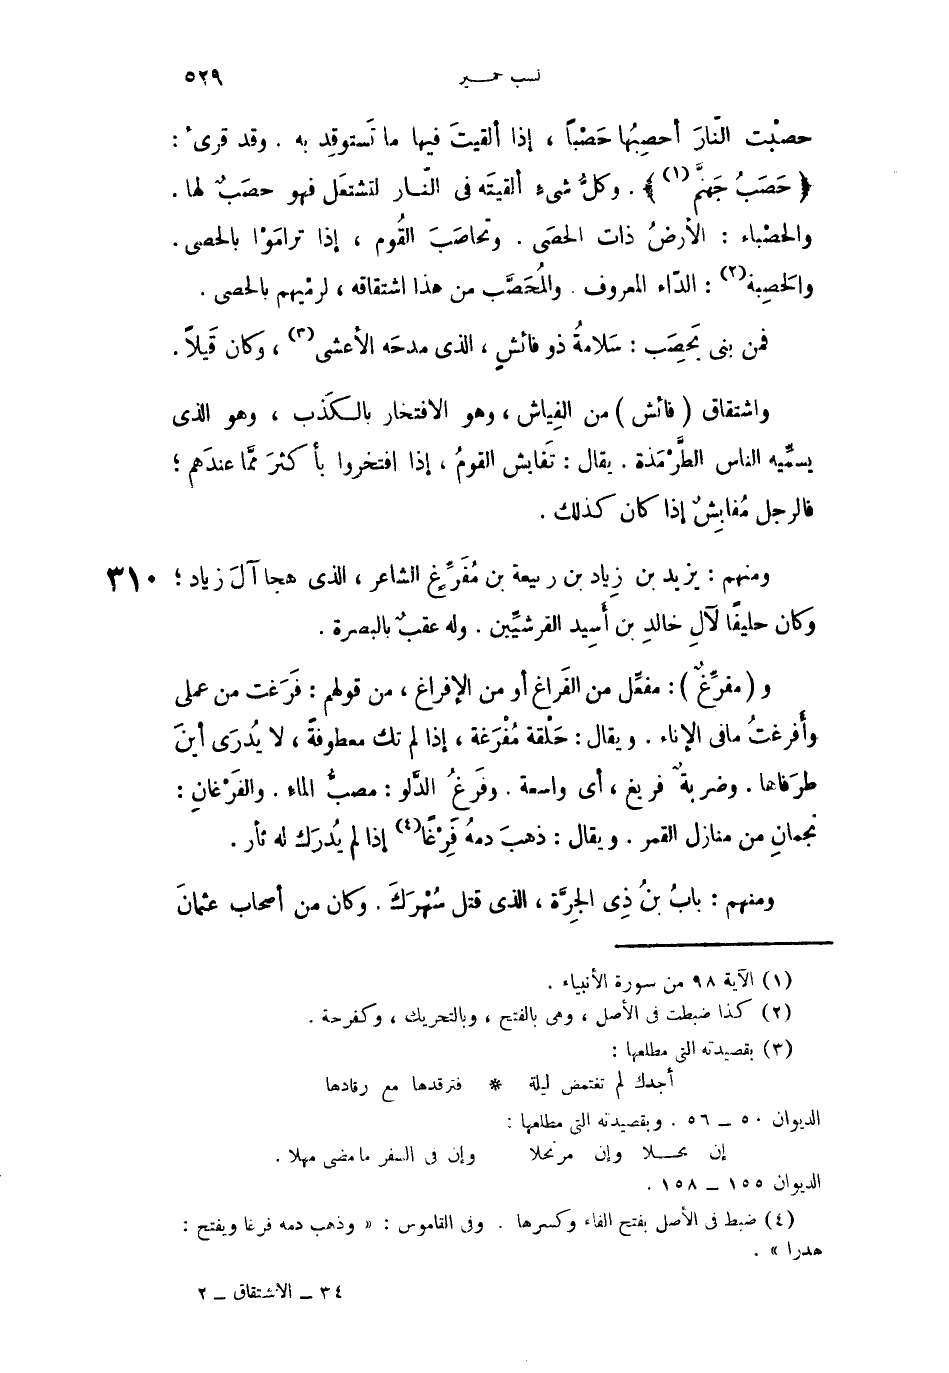 نسب حمير ٥٢٩
حصبْت النّارَ أحصِبُها حَصْباً ، إذا ألقيتَ فيها ما تَستوقِد به . وقد قرىء :
﴿ حَصَبُ جَهنَّم(١)﴾ . وكلُّ شىءٍ ألقيتَه فى النّار لتشتعَل فهو حصَبٌ لها .
والحصْباء : الأرضُ ذات الحصَى . وتحاصَبَ القُوم ، إذا ترامَوْا بالحصى .
والحَصِبة(٢) : الدّاء المعروف . والمُحَصَّب من هذا اشتقاقه ، لرمْيهم بالحصى .
فمن بنى يَحصِب : سَلامةُ ذو فائشٍ ، الذى مدحَه الأعشى(٣) ، وكان قَيلاً .
واشتقاق ( فائش ) من الفِياش ، وهو الافتخار بالكَذب ، وهو الذى
يسمِّيه الناس الطَّرْمَذة . يقال : تَفايش القومُ ، إذا افتخروا بأكثرَ ممَّا عندَهم ؛
فالرجل مُفايِشٌ إذا كان كذلك .
ومنهم : يزيد بن زِياد بن ربيعة بن مُفَرِّغٍ الشاعر ، الذى هجا آلَ زياد ؛ ٣١٠
وكان حليفًا لآلِ خالدِ بن أَسِيد القرشيِّين . وله عقبٌ بالبصرة .
و ( مفرِّغٌ ) : مفعِّل من الفَراغ أو من الإفراغ ، من قولهم : فَرَغت من عملى
وأَفرغتُ مافى الإناء . ويقال : حَلْقة مُفْرَغة ، إذا لم تك معطوفةً ، لا يُدرَى أينَ
طرَفاها . وضربةٌ فريغ ، أى واسعة . وفَرغُ الدَّلو : مصبُّ الماء . والفَرْغانِ :
نجمانِ من منازل القمر . ويقال : ذهبَ دمهُ فَِرْغًا(٤) إذا لم يُدرَك له ثأر .
ومنهم : بابُ بنُ ذِى الجِرَّة ، الذى قتل سُهْرَكَ . وكان من أصحاب عثمانَ
(١) الآية ٩٨ من سورة الأنبياء .
(٢) كذا ضبطت فى الأصل ، وهى بالفتح ، وبالتحريك ، وكفرحة .
(٣) بقصيدته التى مطلعها :
أجدك لم تغتمض ليلة * فترقدها مع رقادها
الديوان ٥٠ ــ ٥٦ . وبقصيدته التى مطلعها :
إن محلا وإن مرتحلا وإن فى السفر مامضى مهلا .
الديوان ١٥٥ ــ ١٥٨ .
(٤) ضبط فى الأصل بفتح الفاء وكسرها . وفى القاموس : « وذهب دمه فرغا ويفتح :
هدرا » .
٣٤ ــ الاشتقاق ــ ٢